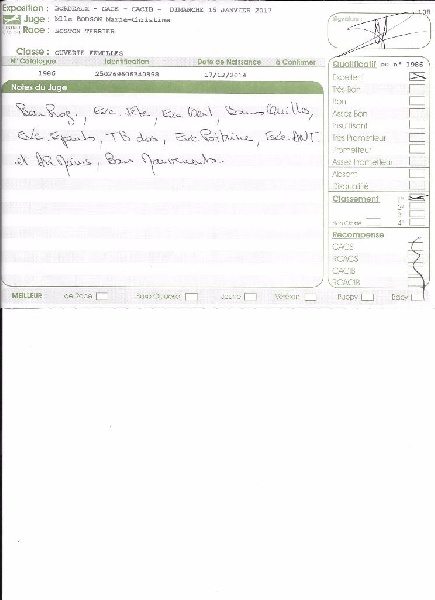 Exposition : BORDEAUX - CACS - CACIB - DIMANCHE 15 JANVIER 2017
Juge : Mlle BODSON Marie-Christine
Race : BOSTON TERRIER
Signature :
Classe : OUVERTE FEMELLES
N° Catalogue Identification Date de Naissance à Confirmer
1986 17/12/2014
Notes du Juge
Bonne Prop., Exc. tête, Exc. Oeil, Bonnes Oreilles,
Exc. Expects, TB dos, Exc. Poitrine, Exc. ANT.
et Bonnes Mouvements.
Qualificatif ou n° 1986
Excellent
Très Bon
Bon
Assez Bon
Insuffisant
Très Prometteur
Prometteur
Assez Prometteur
Absent
Disqualifié
Classement 1er
2e
3e
Non Classé 4e
Récompense
CACS
RCACS
CACIB
RCACIB
MEILLEUR de Race Sexe Opposé Jeune Vétéran Puppy Baby